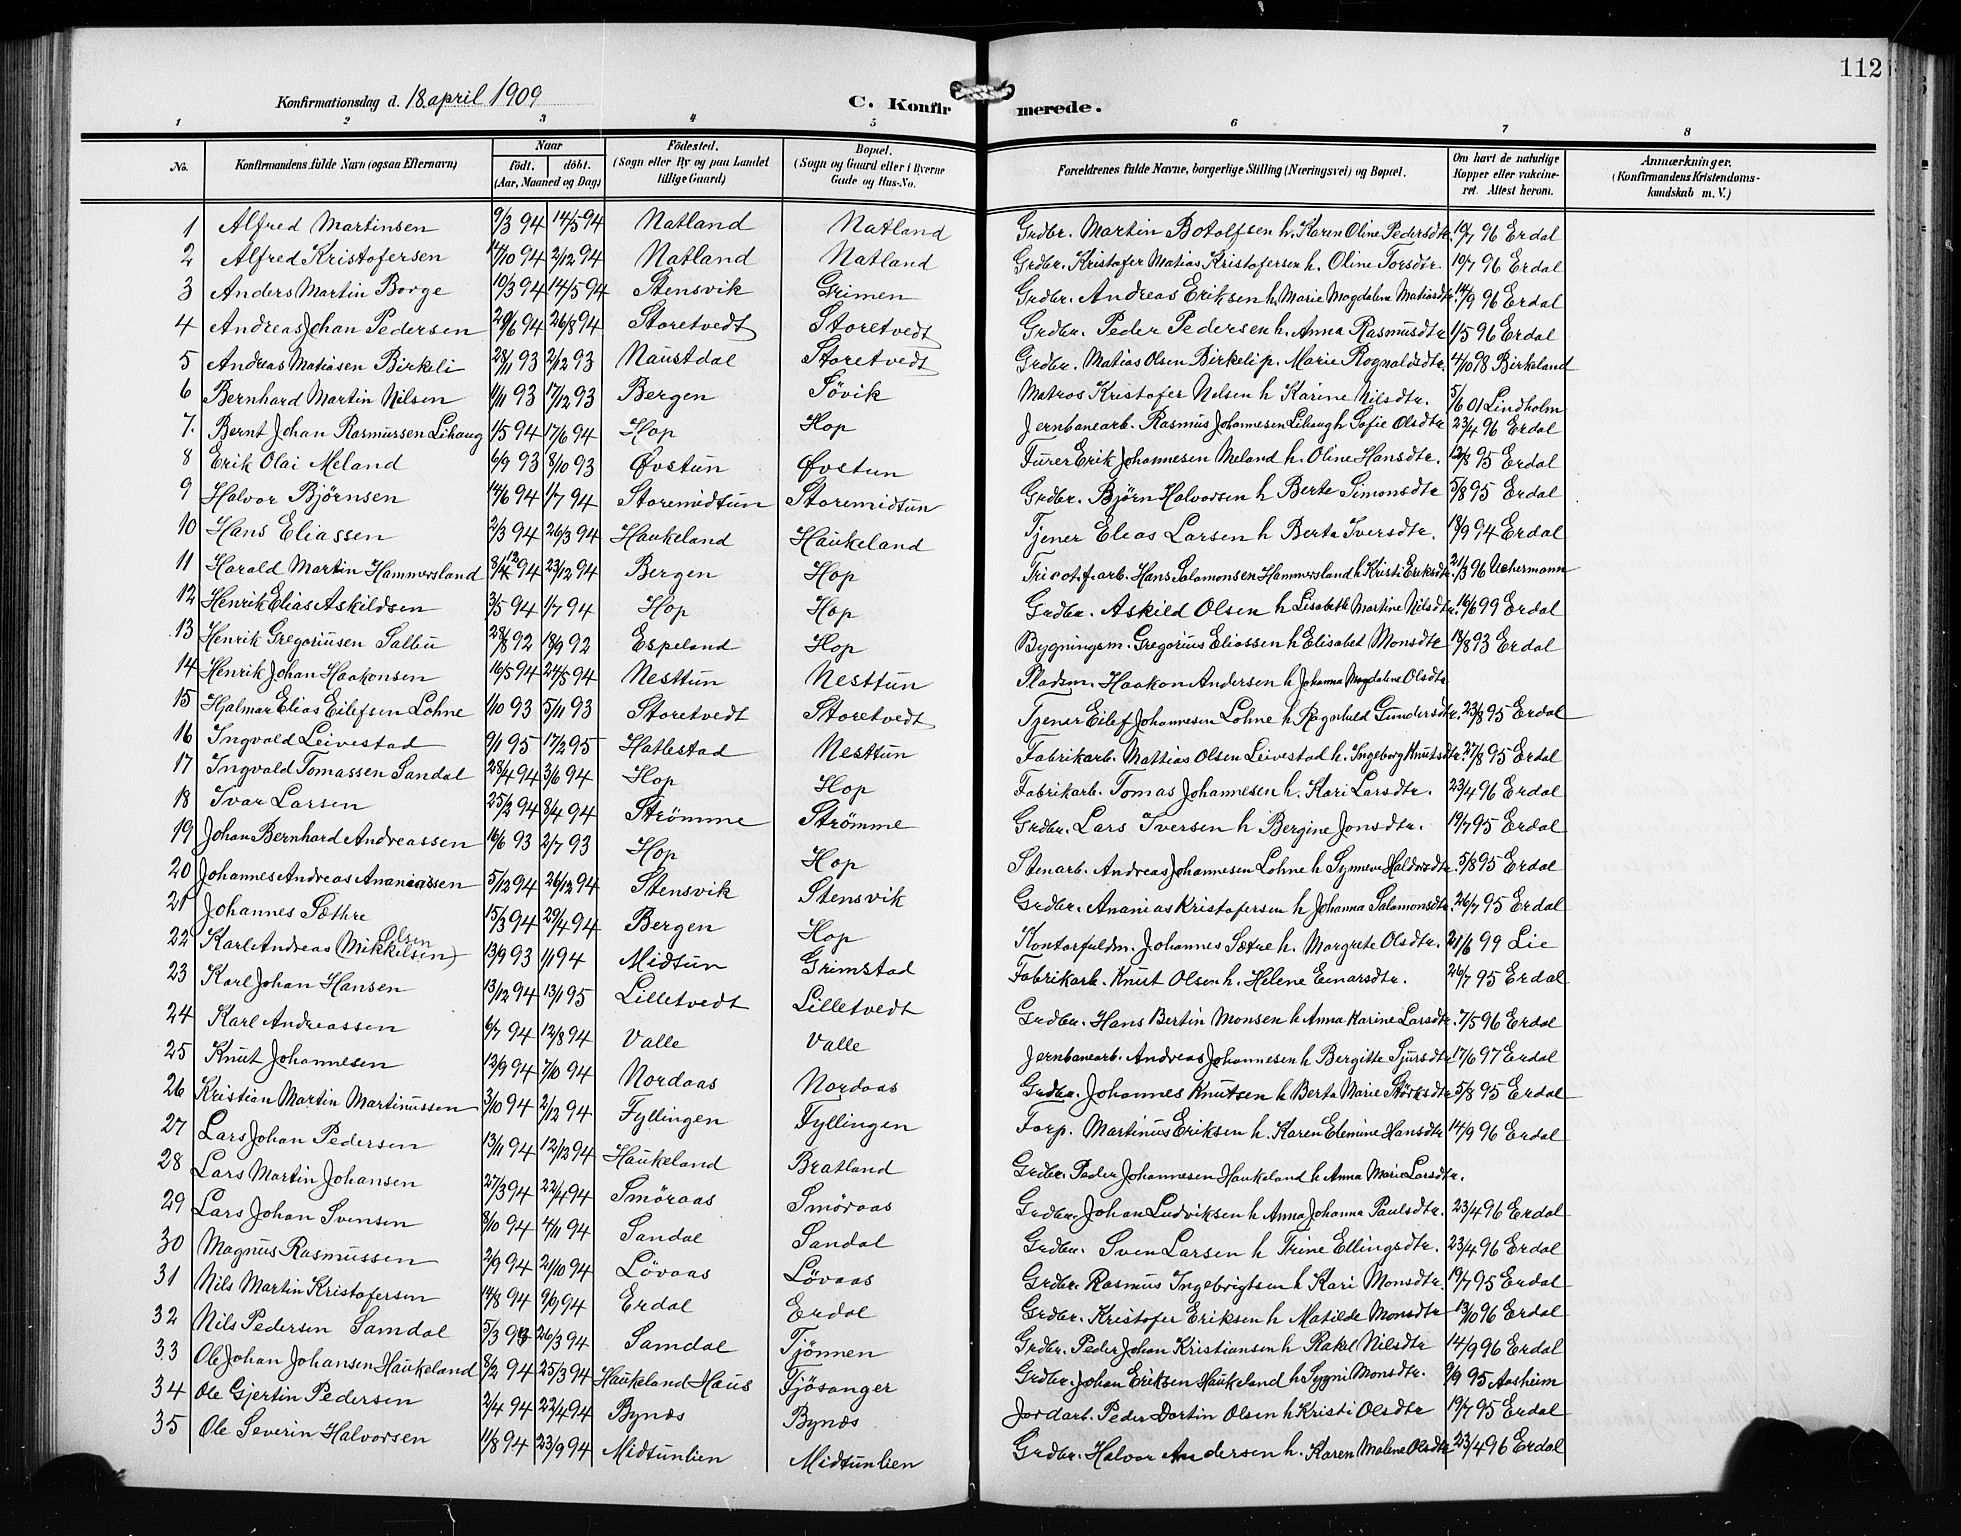 112
Konfirmationsdag d. 18. april 1909
C. Konfirmerede.
1 2 3 4 5 6 7 8
No. Konfirmandens fulde Navn (ogsaa Efternavn) Naar født. døbt. (Aar, Maaned og Dag) Fødested. (Sogn eller By og paa Landet tillige Gaard) Bopæl. (Sogn og Gaard eller i Byerne Gade og Hus-No. Forældrenes fulde Navne, borgerlige Stilling (Næringsvei) og Bopæl. Om havt de naturlige Kopper eller vakcineret. Attest herom. Anmærkninger. (Konfirmandens Kristendomskundskab m. V.)
1 Alfred Martinsen 9/3 94 14/5 94 Natland Natland Grdbr. Martin Botolfsen h. Karen Oline Pedersdtr. 19/7 96 Erdal
2 Alfred Kristofersen 14/10 94 2/12 94 Natland Natland Grdbr. Kristofer Matias Kristofersen h. Oline Torsdtr. 19/7 96 Erdal
3 Anders Martin Borge 10/3 94 14/5 94 Stensvik Grimen Grdbr. Andreas Eriksen h. Marie Magdalene Matiasdtr. 14/9 96 Erdal
4 Andreas Johan Pedersen 29/6 94 26/8 94 Storetvedt Storetvedt Grdbr. Peder Pedersen h. Anna Rasmusdtr 1/5 96 Erdal
5 Andreas Matiasen Birkeli 28/11 93 2/12 93 Naustdal Storetvedt Grdbr. Matias Olsen Birkeli p. Marie Rognaldsdtr. 4/10 98 Birkeland
6 Bernhard Martin Nilsen 1/11 93 17/12 93 Bergen Søvik Matros Kristofer Nilsen h Karine Nilsdtr. 5/6 01 Lindholm
7. Bernt Johan Rasmussen Lihaug 1/5 94 17/6 94 Hop Hop Jernbanearb. Rasmus Johannesen Lihaug h Sofie Olsdtr 23/4 96 Erdal
8 Erik Olai Meland 6/9 93 8/10 93 Øvstun Øvstun Furer Erik Johannesen Meland h. Oline Hansdtr. 12/8 95 Erdal
9 Halvor Bjørnsen 14/6 94 1/7 94 Storemidtun Storemidtun Grdbr. Bjørn Halvorsen h Berte Simonsdtr 5/8 95 Erdal
10 Hans Eliassen 2/3 94 26/3 94 Haukeland Haukeland Tjener Elias Larsen h Berta Iversdtr. 18/9 94 Erdal
11 Harald Martin Hammersland 8/12 94 23/12 94 Bergen Hop Tricot.f.arb. Hans Salamonsen Hammersland h Kristi Eriksdtr. 21/3 96 Uchermann
12 Henrik Elias Askildsen 3/5 94 1/7 94 Hop Hop Grdbr. Askild Olsen h Lisabeth Martine Nilsdtr. 16/6 99 Erdal
13 Henrik Gregoriusen Salbu 28/8 92 18/9 92 Espeland Hop Bygningsm. Gregorius Eliassen h Elisabet Monsdtr 18/8 93 Erdal
14 Henrik Johan Haakonsen 16/5 94 24/5 94 Nesttun Nesttun Pladsm. Haakon Andersen h Johanna Magdalene Olsdtr
15 Hjalmar Elias Eilefsen Lohne 1/10 93 5/11 93 Storetvedt Storetvedt Tjener Eilef Johannesen Lohne h Ragnhild Gundersdtr. 23/8 95 Erdal
16 Ingvald Leivestad 9/1 95 17/2 95 Hatlestad Nesttun Fabrikarb. Mattias Olsen Leivestad h. Ingeborg Knutsdtr. 27/8 95 Erdal
17 Ingvald Tomassen Sandal 28/4 94 3/6 94 Hop Hop Fabrikarb. Tomas Johannesen h. Kari Larsdtr. 23/4 96 Erdal
18 Ivar Larsen 25/2 94 8/4 94 Strømme Strømme Grdbr. Lars Iversen h Bergine Jonsdtr. 19/7 95 Erdal
19 Johan Bernhard Andreassen 16/6 93 2/7 93 Hop Hop Stenarb. Andreas Johannesen Lohne h Synneve Haldorsdtr. 5/8 95 Erdal
20 Johannes Andreas Ananiassen 5/12 94 26/12 94 Stensvik Stensvik Grdbr. Ananias Kristofersen h Johanna Salamonsdtr. 26/7 95 Erdal
21 Johannes Sæthre 15/3 94 29/4 94 Bergen Hop Kontorfuldm. Johannes Sætre h. Margrete Olsdtr. 21/6 99 Lie
22 Karl Andreas (Mikkelsen) Olsen 13/9 93 1/1 94 Midtun Grimstad Fabrikarb. Knut Olsen h. Helene Einarsdtr. 26/7 95 Erdal
23 Karl Johan Hansen 13/12 94 13/1 95 Lilletvedt Lilletvedt Grdbr. Hans Bertin Monsen h Anna Karine Larsdtr. 7/5 96 Erdal
24 Karl Andreassen 6/7 94 12/8 94 Valle Valle Jernbanearb. Andreas Johannesen h Bergitte Sjursdtr 17/6 97 Erdal
25 Knut Johannesen 12/9 94 7/10 94 Nordaas Nordaas Grdbr. Johannes Knutsen h Berta Marie Størksdtr 5/8 95 Erdal
26 Kristian Martin Martinussen 3/10 94 2/12 94 Fyllingen Fyllingen Forp. Martinus Eriksen h. Karen Elemine Hansdtr 14/9 96 Erdal
27 Lars Johan Pedersen 13/11 94 12/12 94 Haukeland Bratland Grdbr. Peder Johannesen Haukeland h Anna Marie Larsdtr.
28 Lars Martin Johansen 27/3 94 22/4 94 Smøraas Smøraas Grdbr. Johan Ludviksen h Anna Johanna Paulsdtr. 23/4 96 Erdal
29 Lars Johan Svensen 8/10 94 4/11 94 Sandal Sandal Grdbr. Sven Larsen h Trine Ellingsdtr. 23/4 96 Erdal
30 Magnus Rasmussen 2/9 94 21/10 94 Løvaas Løvaas Grdbr. Rasmus Ingebrigtsen h Kari Monsdtr. 19/7 95 Erdal
31 Nils Martin Kristofersen 14/8 94 9/9 94 Erdal Erdal Grdbr. Kristofer Eriksen h Matilde Monsdtr 13/10 96 Erdal
32 Nils Pedersen Samdal 5/3 94 26/3 94 Samdal Tjønnen Grdbr. Peder Johan Kristiansen h Rakel Nilsdtr 14/9 96 Erdal
33 Ole Johan Johansen Haukeland 8/2 94 25/3 94 Haukeland Haus Fjøsanger Grdbr. Johan Eriksen Haukeland h Sygni Monsdtr. 9/9 95 Aasheim
34 Ole Gjertin Pedersen 2/4 94 22/4 94 Bynes Bynes Jordarb. Peder Dortin Olsen h Kristi Olsdtr 19/7 95 Erdal
35 Ole Severin Halvorsen 11/8 94 23/9 94 Midtunlien Midtunlien Grdbr. Halvor Andersen h. Karen Malene Olsdtr. 23/4 96 Erdal